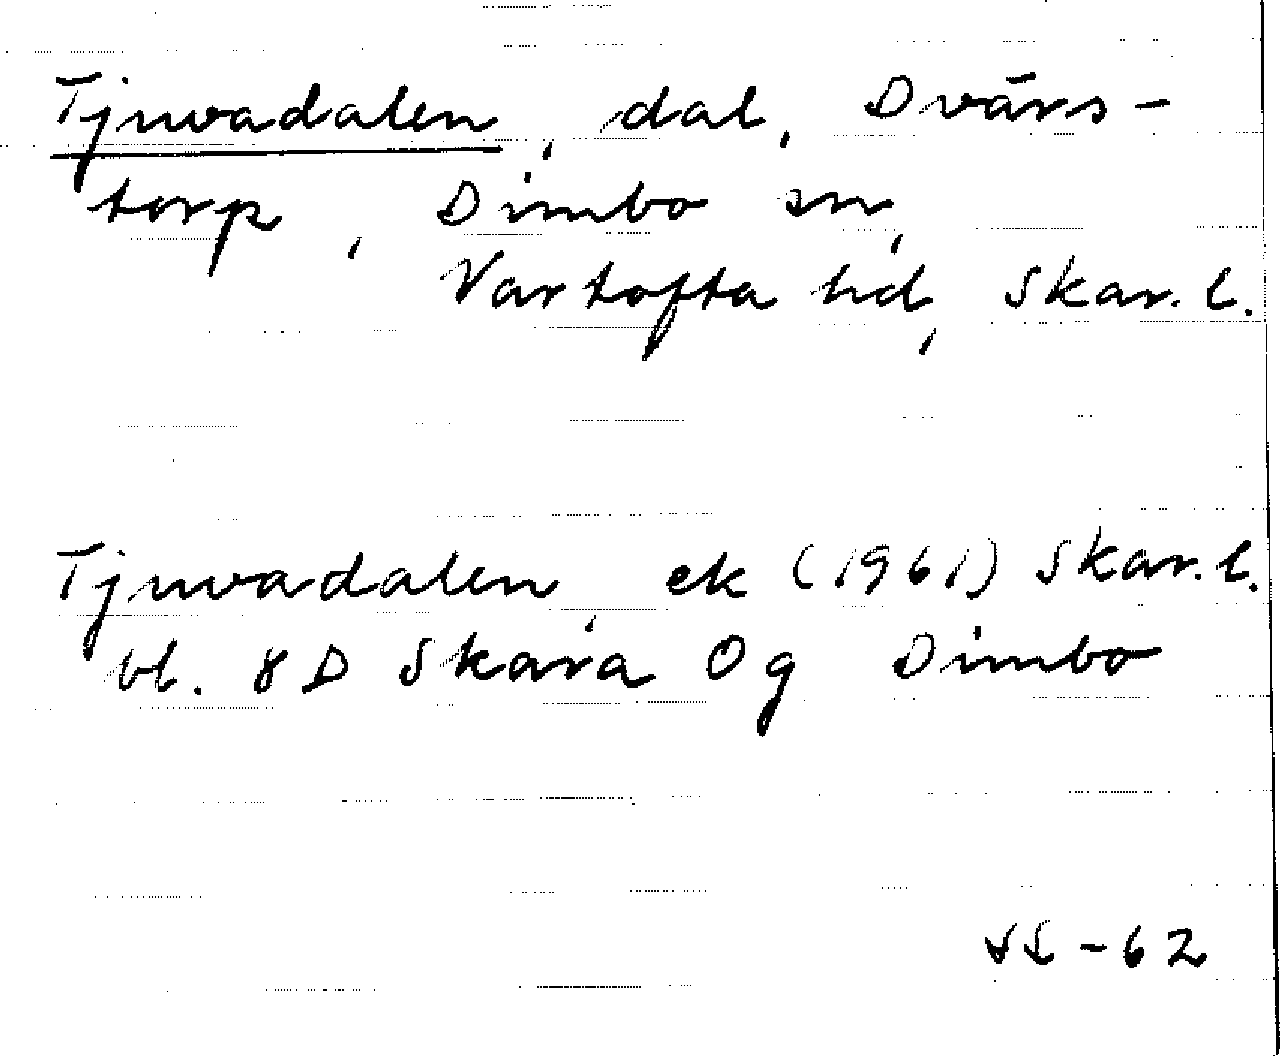 Tjuvadalen, dal, Dvärs-
torp, Dimbo sn,
Vartofta hd, Skar. l.
Tjuvadalen, ek (1961) Skar. l.
bl. 8D Skara 0g Dimbo
-62